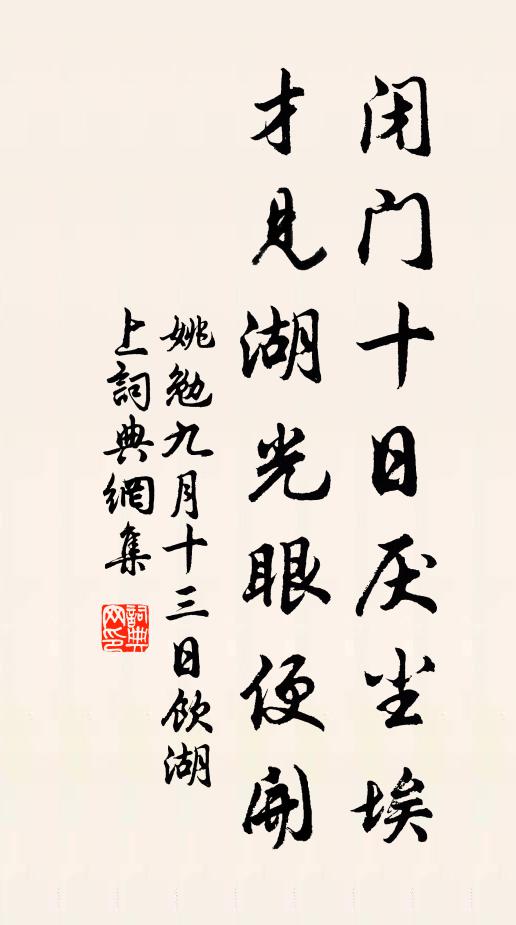 闭门十日厌尘埃
才见湖光眼便开
姚勉九月十三日饮湖
上詞典網集
詞典
网印